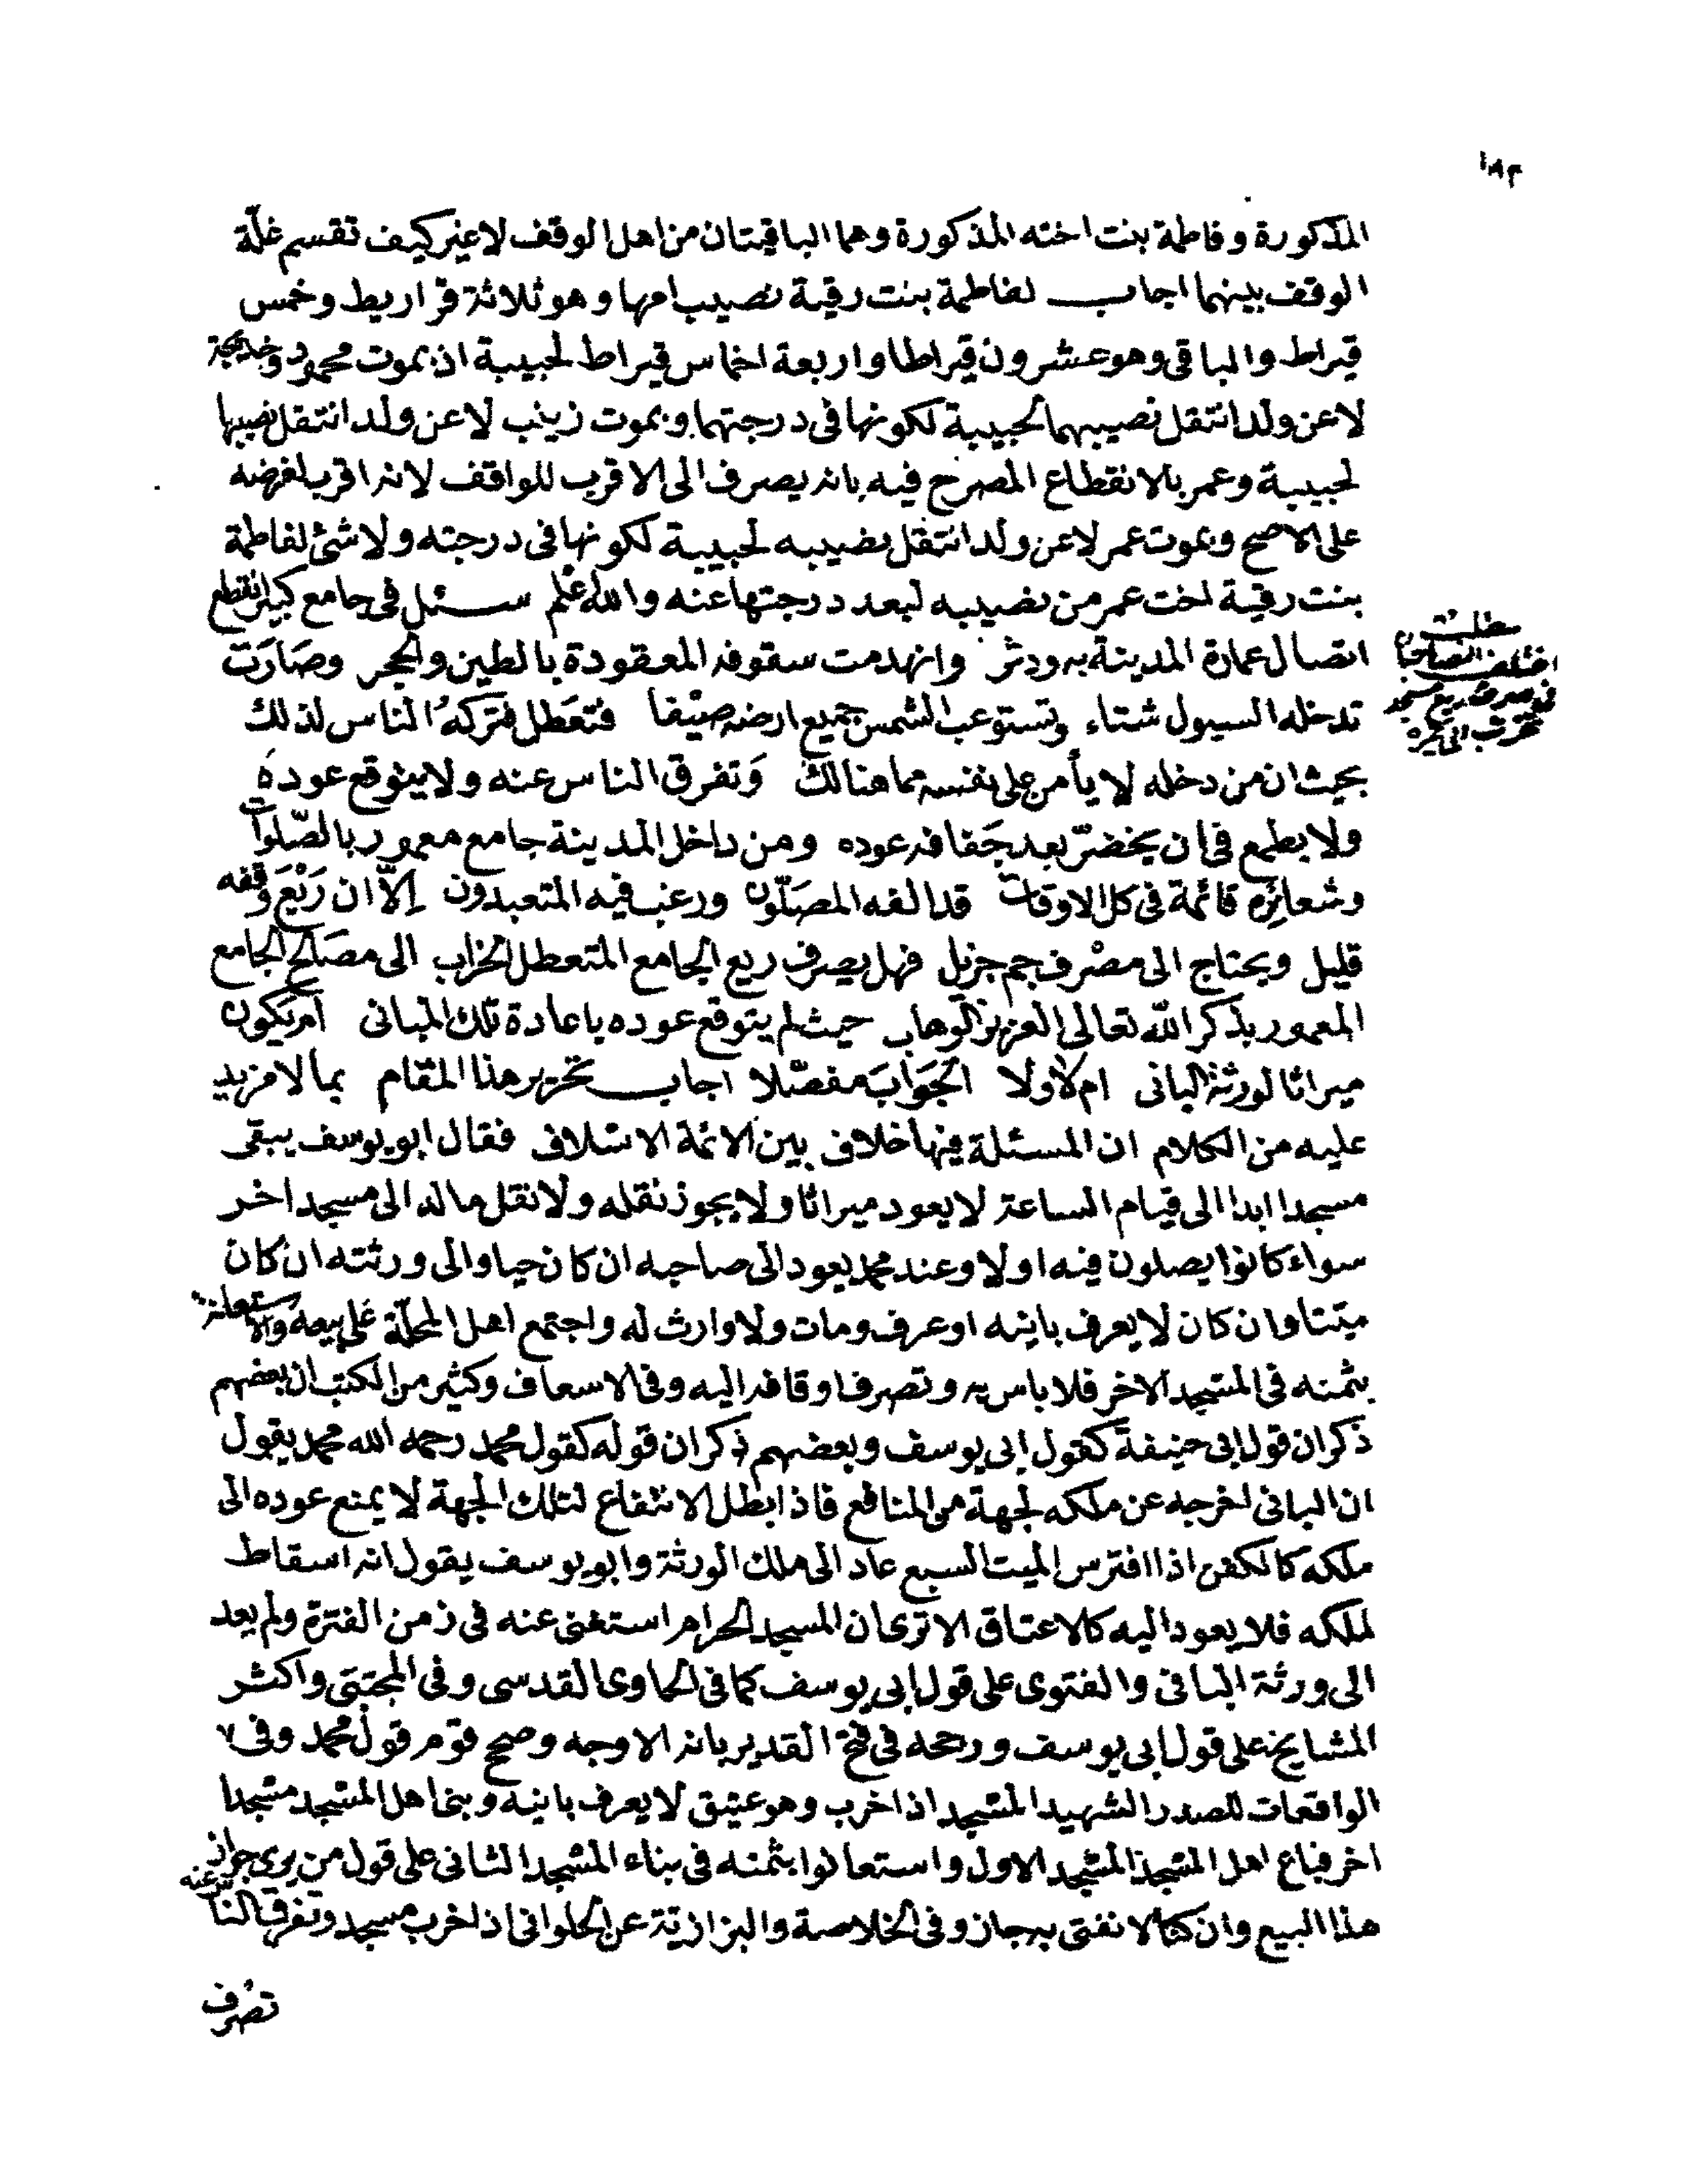 ١٨٣
المذكورة وفاطمة بنت اخته المذكورة وهما الباقيتان من اهل الوقف لاغير كيف تقسم غلّة
الوقف بينهما اجاب لفاطمة بنت رقية نصيب امها وهو ثلاثة قراريط وخمس
قيراط والباقى وهو عشرون قيراطا واربعة اخماس قيراط لحبيبة اذ بموت محمود وخديجة
لاعن ولد انتقل نصيبهما لحبيبة لكونها فى درجتهما وبموت زينب لاعن ولد انتقل نصيبها
لحبيبة وعمر بالانقطاع المصرح فيه بانه يصرف الى الاقرب للواقف لانه اقرب لغرضه
على الاصح وبموت عمر لاعن ولد انتقل نصيبه لحبيبة لكونها فى درجته ولاشئ لفاطمة
بنت رقية اخت عمر من نصيبه لبعد درجتها عنه والله اعلم سئل فى جامع كبير انقطع
اتصال عمارة المدينة به ودثر وانهدمت سقوفه المعقودة بالطين والحجر وصَارَت
تدخله السيول شتاء وتستوعب الشمس جميع ارضه صيْفا فتَعَطل فتركهُ الناس لذلك
بحيث ان من دخله لا يأمن على نفسه مما هنالك وَتفرق الناس عنه ولا يتوقع عودهُ
ولا يطمع فى ان يخضرّ بعد جَفافه عوده ومن داخل المدينة جامع معمور بالصّلوات
وشعائره قائمة فى كل الاوقات قد الفه المصَلّون ورغب فيه المتعبدون اِلاّ ان رَيْعَ وقفه
قليل ويحتاج الى مصْرف جم جزيل فهل يصرف ريع الجامع المتعطل الخراب الى مصَالح الجامع
المعمور بذكر الله تعالى العزيز الوهاب حيث لم يتوقع عوده باعادة تلك المبانى اَم يَكون
ميراثا لورثة البانى ام لا ولا الجَوَابَ مفصّلا اجاب تحرير هذا المقام بما لا مزيد
عليه من الكلام ان المسئلة فيها خلاف بين الائمة الاسْلاف فقال ابو يوسف يبقى
مسجدا ابدا الى قيام الساعة لا يعود ميراثا ولا يجوز نقله ولا نقل ماله الى مسجد اخر
سواء كانوا يصلون فيه اولا وعند محمد يعود الى صاحبه ان كان حيا والى ورثته ان كان
ميتا وان كان لا يعرف بانيه او عرف ومات ولا وارث له واجتمع اهل المحلّة على بيعه والاستعانة
بثمنه فى المسْجد الاخر فلا باس به وتصرف اوقافه اليه وفى الاسعاف وكثير من الكتب ان بعضهم
ذكر ان قول ابى حنيفة كقول ابى يوسف وبعضهم ذكر ان قوله كقول محمد رحمه الله محمد يقول
ان البانى اخرجه عن ملكه لجهة من المنافع فاذا بطل الانتفاع لتلك الجهة لا يمنع عوده الى
ملكه كالكفن اذا افترس الميت السبع عاد الى ملك الورثة وابو يوسف يقول انه اسقاط
لملكه فلا يعود اليه كالاعتاق الا ترى ان المسجد الحرام استغنى عنه فى زمن الفترة ولم يعد
الى ورثة البانى والفتوى على قول ابى يوسف كما فى الحاوى القدسى وفى المجتبَى واكثر
المشايخ على قول ابى يوسف ورجحه فى فتح القدير بانه الاوجه وصحح قوم قول محمد وفى
الواقعات للصدر الشهيد المسْجد اذا خرب وهو عتيق لا يعرف بانيه وبنى اهل المسْجد مسْجدا
اخر فباع اهل المسْجد المسْجد الاول واستعانوا بثمنه فى بناء المسْجد الثانى على قول من يرى جواز
هذا البيع وان كنا لا نفتى به جاز وفى الخلاصة والبزازية عن الحلوانى اذا خرب مسجد وتفرق الناس عنه
تصرف
مطلب
اختلف الصاحبان
فى صرف ريع مسجد
خرب الى غيره